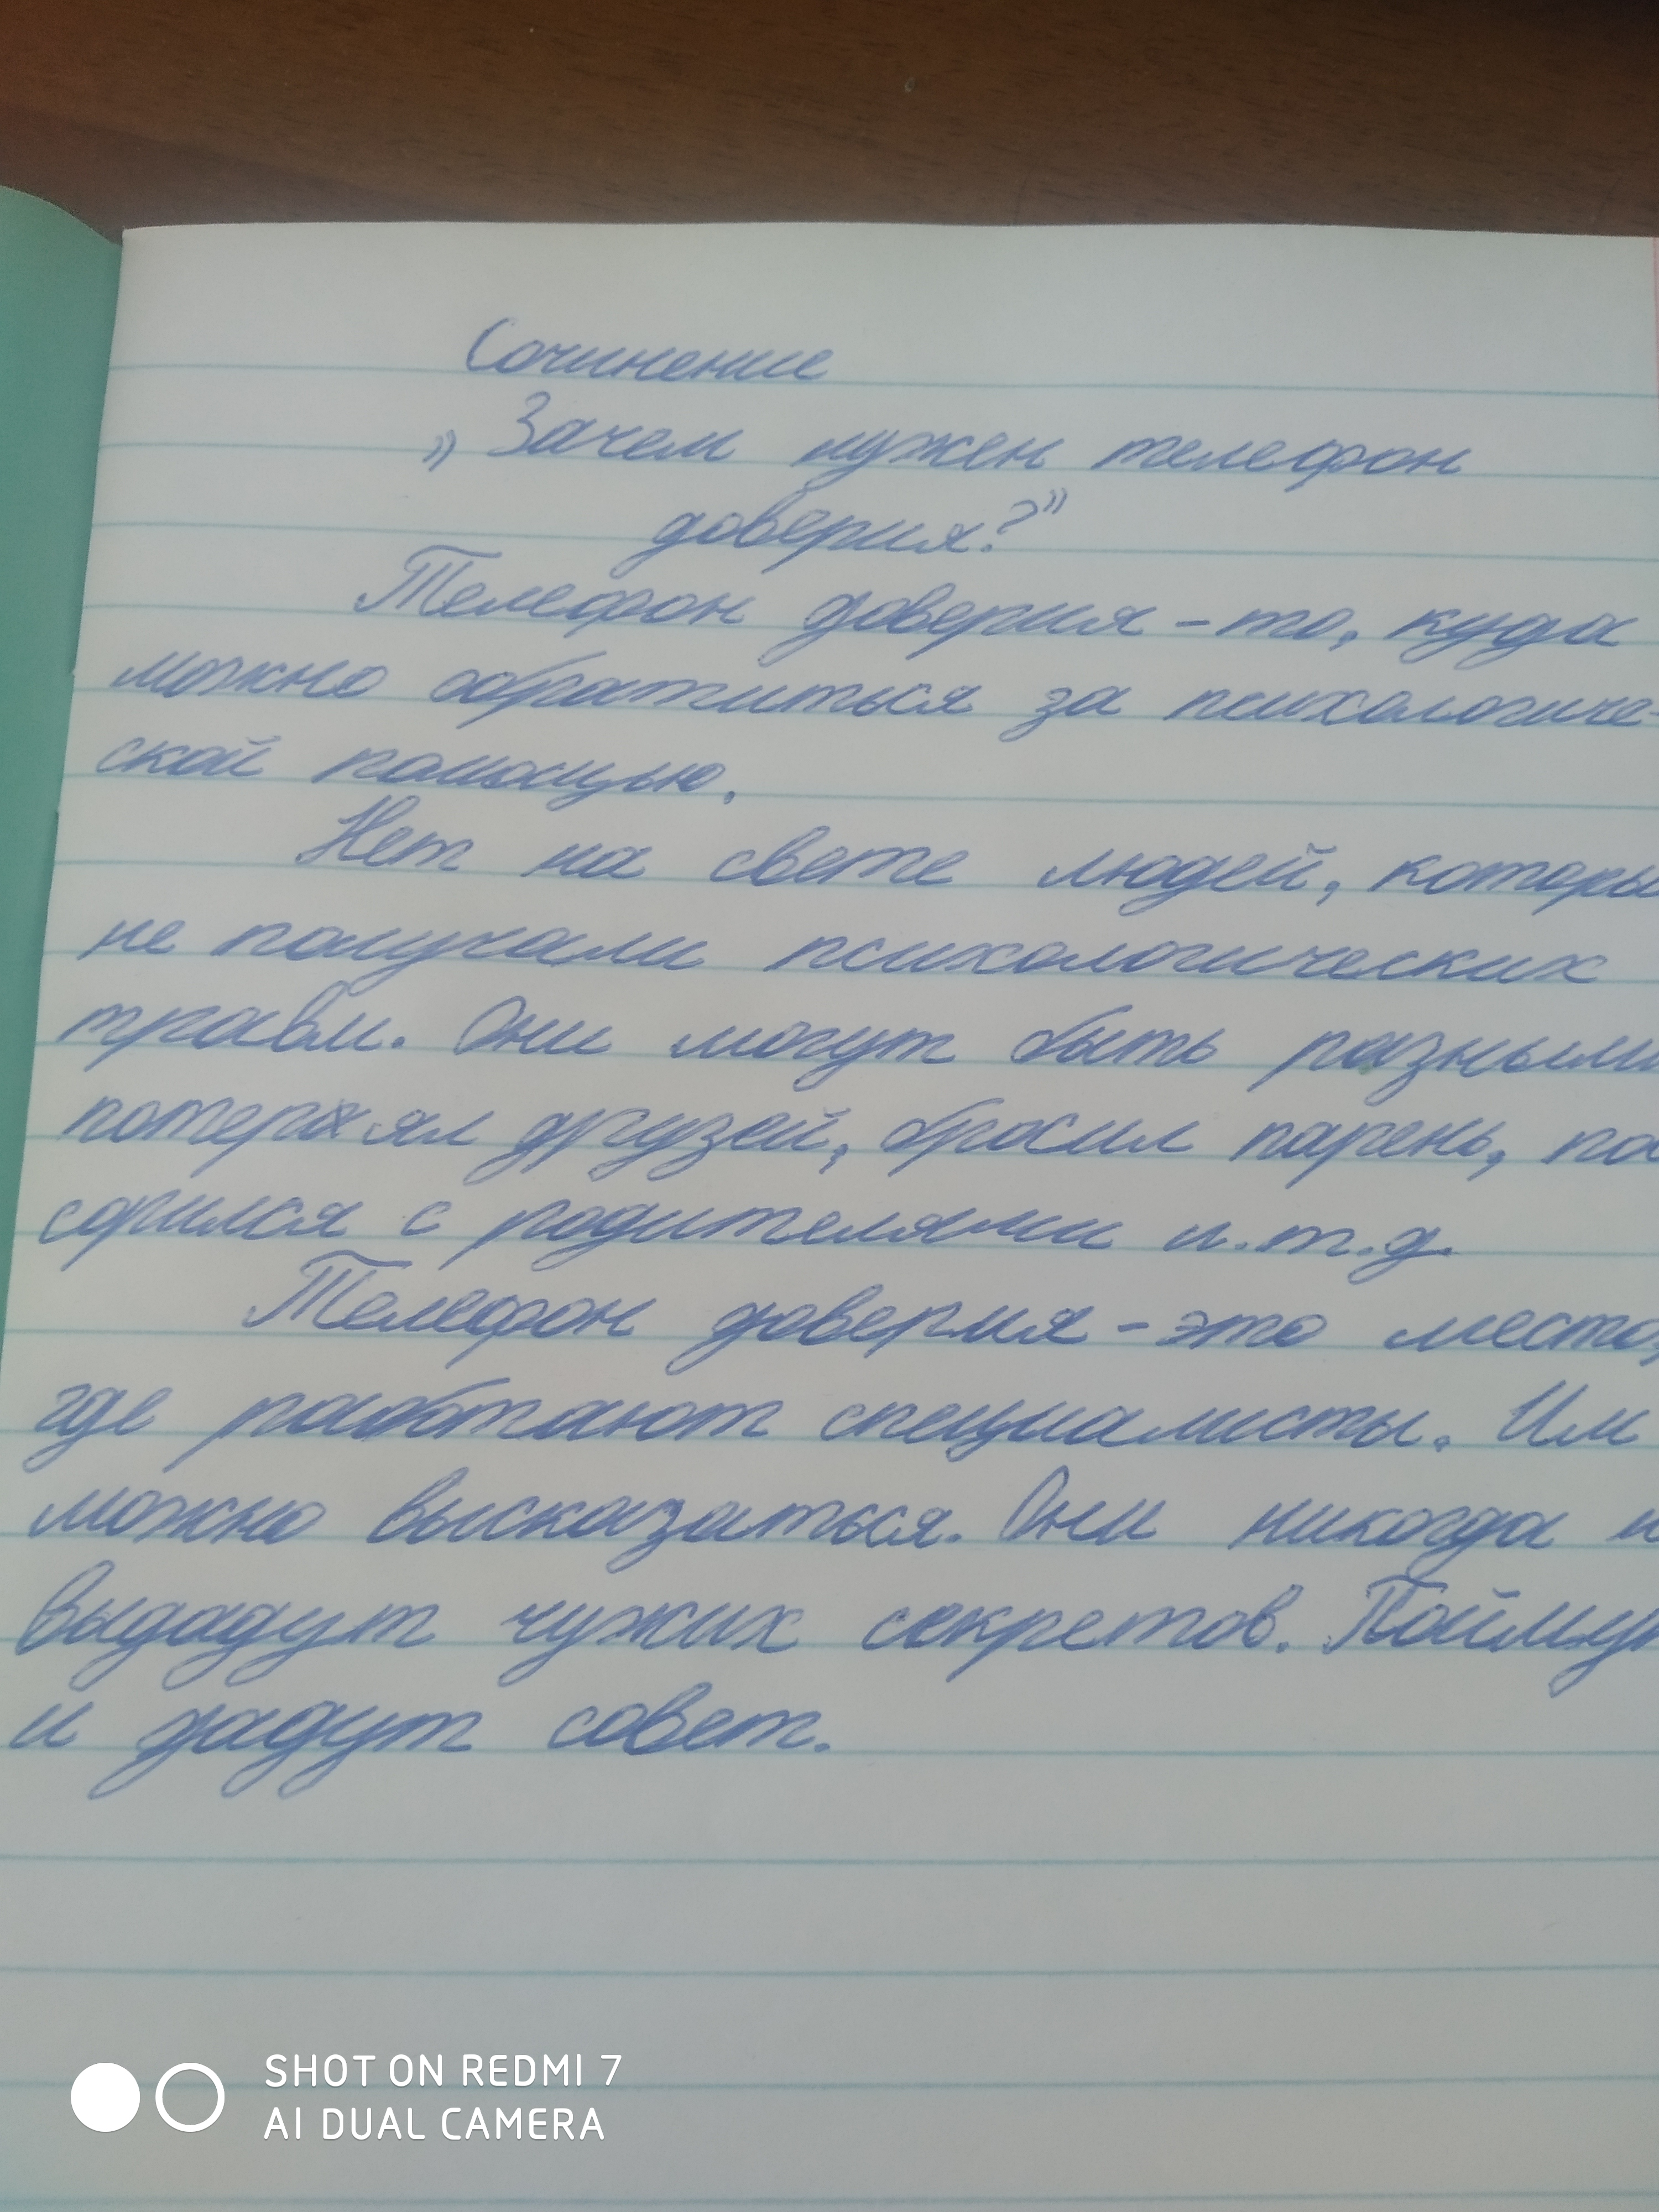 Сочинение
„Зачем нужен телефон
доверия?”
Телефон доверия - то, куда
можно обратиться за психологиче-
ской помощью.
Нет на свете людей, которы
не получали психологических
травм. Они могут быть разными
потерял друзей, бросил парень, по
сорился с родителями и.т.д.
Телефон доверия - это место,
где работают специалисты. Им
можно высказаться. Они никогда н
выдадут чужих секретов. Поймут
и дадут совет.
SHOT ON REDMI 7
AI DUAL CAMERA